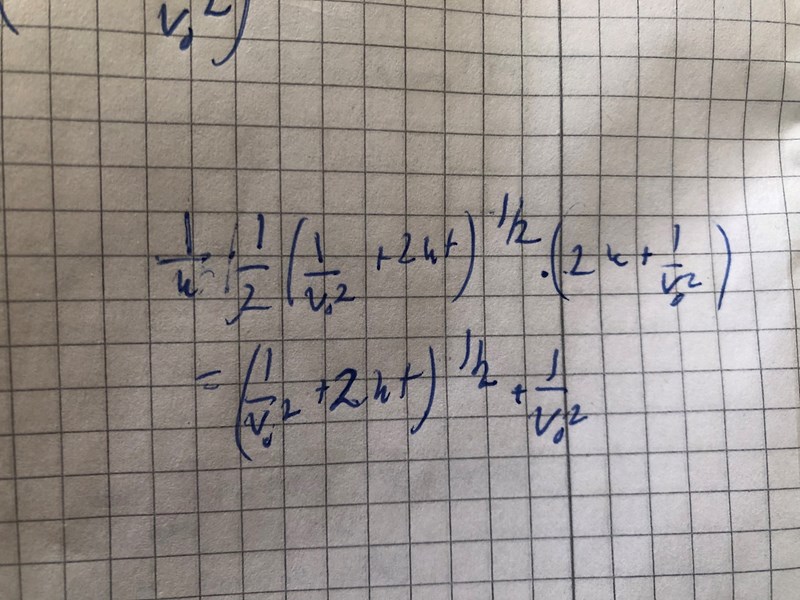 v₀²)
1/k · 1/2 (1/v₀² + 2kt)^1/2 · (2k + 1/v₀²)
= (1/v₀² + 2kt)^1/2 + 1/v₀²